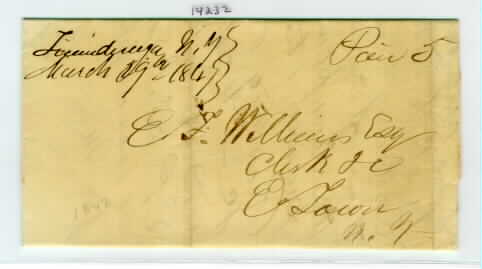 14232
Ticonderoga N.Y
March 29th 184
Paid 5
E F. Williams Esq
Clerk &c
E Town
N. Y
1842